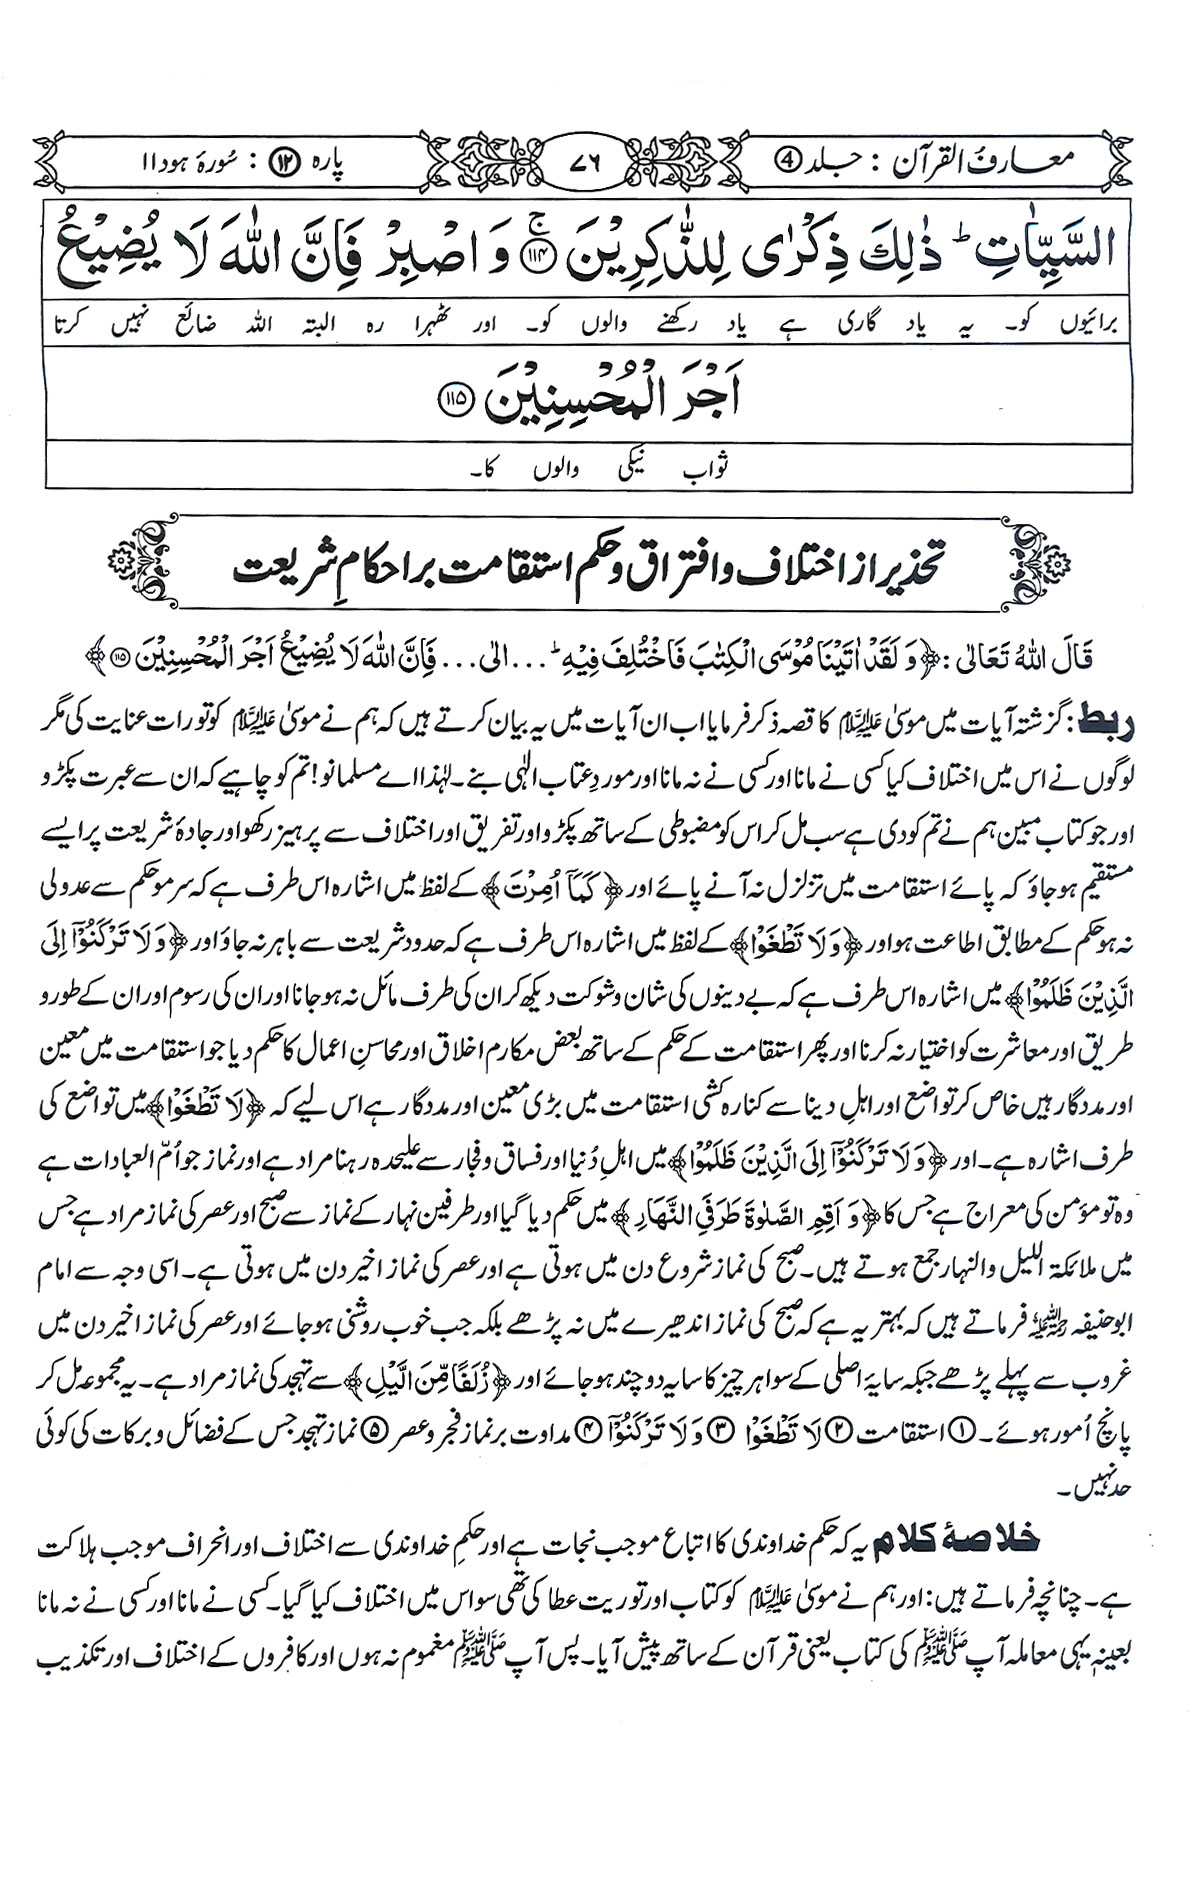 معارف القرآن : جلد ④
۷۶
پارہ ⑫ : سُورۂ ہود ۱۱
السَّيِّاٰتِ ؕ ذٰلِكَ ذِكْرٰى لِلذّٰكِرِيْنَ ۚ ﴿۱۱۴﴾ وَ اصْبِرْ فَاِنَّ اللّٰهَ لَا يُضِيْعُ
برائیوں کو۔ یہ یاد گاری ہے یاد رکھنے والوں کو۔ اور ٹھہرا رہ البتہ اللہ ضائع نہیں کرتا
اَجْرَ الْمُحْسِنِيْنَ ﴿۱۱۵﴾
ثواب نیکی والوں کا۔
تحذیر از اختلاف و افتراق و حکم استقامت بر احکامِ شریعت
قَالَ اللّٰهُ تَعَالٰى : ﴿وَ لَقَدْ اٰتَيْنَا مُوْسَى الْكِتٰبَ فَاخْتُلِفَ فِيْهِ ؕ ... الى ... فَاِنَّ اللّٰهَ لَا يُضِيْعُ اَجْرَ الْمُحْسِنِيْنَ ﴿۱۱۵﴾﴾
ربط : گزشتہ آیات میں موسیٰ علیہ السلام کا قصہ ذکر فرمایا اب ان آیات میں یہ بیان کرتے ہیں کہ ہم نے موسیٰ علیہ السلام کو تورات عنایت کی مگر
لوگوں نے اس میں اختلاف کیا کسی نے مانا اور کسی نے نہ مانا اور موردِ عتاب الٰہی بنے۔ لہٰذا اے مسلمانو! تم کو چاہیے کہ ان سے عبرت پکڑو
اور جو کتاب مبین ہم نے تم کو دی ہے سب مل کر اس کو مضبوطی کے ساتھ پکڑو اور تفریق اور اختلاف سے پرہیز رکھو اور جادۂ شریعت پر ایسے
مستقیم ہو جاؤ کہ پائے استقامت میں تزلزل نہ آنے پائے اور ﴿ كَمَآ اُمِرْتَ ﴾ کے لفظ میں اشارہ اس طرف ہے کہ سر مو حکم سے عدولی
نہ ہو حکم کے مطابق اطاعت ہو اور ﴿وَلَا تَطْغَوْا﴾ کے لفظ میں اشارہ اس طرف ہے کہ حدود شریعت سے باہر نہ جاؤ اور ﴿وَلَا تَرْكَنُوْٓا اِلَى
الَّذِيْنَ ظَلَمُوْا﴾ میں اشارہ اس طرف ہے کہ بے دینوں کی شان و شوکت دیکھ کر ان کی طرف مائل نہ ہو جانا اور ان کی رسوم اور ان کے طور و
طریق اور معاشرت کو اختیار نہ کرنا اور پھر استقامت کے حکم کے ساتھ بعض مکارم اخلاق اور محاسنِ اعمال کا حکم دیا جو استقامت میں معین
اور مددگار ہیں خاص کر تواضع اور اہلِ دینا سے کنارہ کشی استقامت میں بڑی معین اور مددگار ہے اس لیے کہ ﴿لَا تَطْغَوْا﴾ میں تواضع کی
طرف اشارہ ہے۔ اور ﴿وَلَا تَرْكَنُوْٓا اِلَى الَّذِيْنَ ظَلَمُوْا﴾ میں اہلِ دُنیا اور فساق و فجار سے علیحدہ رہنا مراد ہے اور نماز جو اُمّ العبادات ہے
وہ تو مؤمن کی معراج ہے جس کا ﴿وَ اَقِمِ الصَّلٰوةَ طَرَفَيِ النَّهَارِ ﴾ میں حکم دیا گیا اور طرفین نہار کے نماز سے صبح اور عصر کی نماز مراد ہے جس
میں ملائکۃ اللیل والنہار جمع ہوتے ہیں۔ صبح کی نماز شروع دن میں ہوتی ہے اور عصر کی نماز اخیر دن میں ہوتی ہے۔ اسی وجہ سے امام
ابوحنیفہ رحمۃ اللہ علیہ فرماتے ہیں کہ بہتر یہ ہے کہ صبح کی نماز اندھیرے میں نہ پڑھے بلکہ جب خوب روشنی ہو جائے اور عصر کی نماز اخیر دن میں
غروب سے پہلے پڑھے جبکہ سایۂ اصلی کے سوا ہر چیز کا سایہ دو چند ہو جائے اور ﴿زُلَفًا مِّنَ الَّيْلِ﴾ سے تہجد کی نماز مراد ہے۔ یہ مجموعہ مل کر
پانچ اُمور ہوئے۔ ① استقامت ② لَا تَطْغَوْا ③ وَلَا تَرْكَنُوْٓا ④ مداوت بر نماز فجر و عصر ⑤ نماز تہجد جس کے فضائل و برکات کی کوئی
حد نہیں۔
خلاصۂ کلام یہ کہ حکم خداوندی کا اتباع موجب نجات ہے اور حکمِ خداوندی سے اختلاف اور انحراف موجب ہلاکت
ہے۔ چنانچہ فرماتے ہیں: اور ہم نے موسیٰ علیہ السلام کو کتاب اور توریت عطا کی تھی سو اس میں اختلاف کیا گیا۔ کسی نے مانا اور کسی نے نہ مانا
بعینہٖ یہی معاملہ آپ ﷺ کی کتاب یعنی قرآن کے ساتھ پیش آیا۔ پس آپ ﷺ مغموم نہ ہوں اور کافروں کے اختلاف اور تکذیب